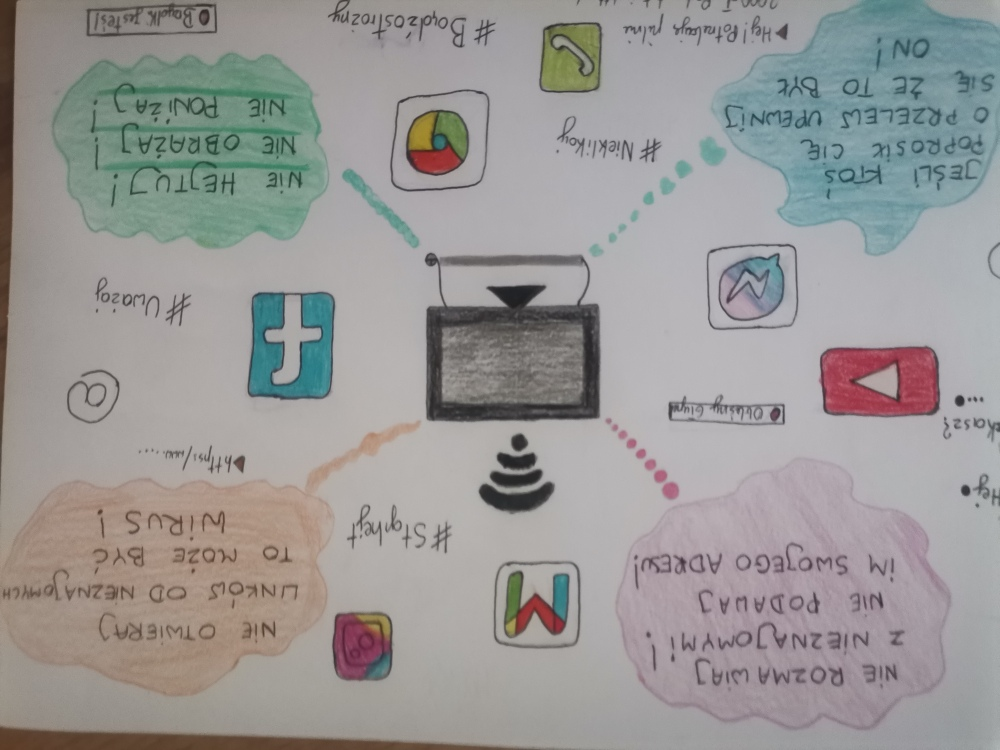 NIE ROZMAWIAJ
Z NIEZNAJOMYMI!
NIE PODAWAJ
IM SWOJEGO ADRESU!
NIE OTWIERAJ
LINKÓW OD NIEZNAJOMYCH
TO MOŻE BYĆ
WIRUS!
#Stophejt
Hej
...
https/www......
@
#Uważaj
JEŚLI KTOŚ
POPROSIŁ CIĘ
O PRZELEW UPEWNIJ
SIĘ ŻE TO BYŁ
ON!
#Nieklikaj
NIE HEJTUJ!
NIE OBRAŻAJ!
NIE PONIŻAJ!
Hej! Potrzebuje pilnie
#Bądźostrożny
jesteś!